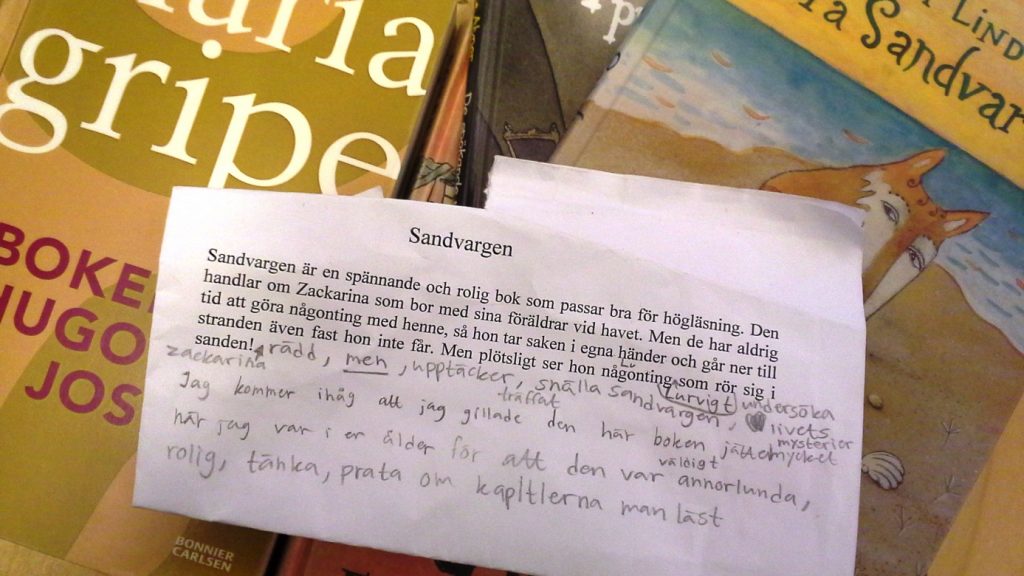 aria
gripe
BOKE
HUGO
JOS
BONNIER
CARLSEN
LIND
ra Sandvar
Sandvargen
Sandvargen är en spännande och rolig bok som passar bra för högläsning. Den
handlar om Zackarina som bor med sina föräldrar vid havet. Men de har aldrig
tid att göra någonting med henne, så hon tar saken i egna händer och går ner till
stranden även fast hon inte får. Men plötsligt ser hon någonting som rör sig i
sanden!
Lurvigt
zackarina rädd, men, upptäcker, snälla sandvargen, undersöka
träffat
livets
mysterier
Jag kommer ihåg att jag gillade den här boken jättemycket
när jag var i er ålder för att den var annorlunda,
väldigt
rolig, tänka, prata om kapitlerna man läst